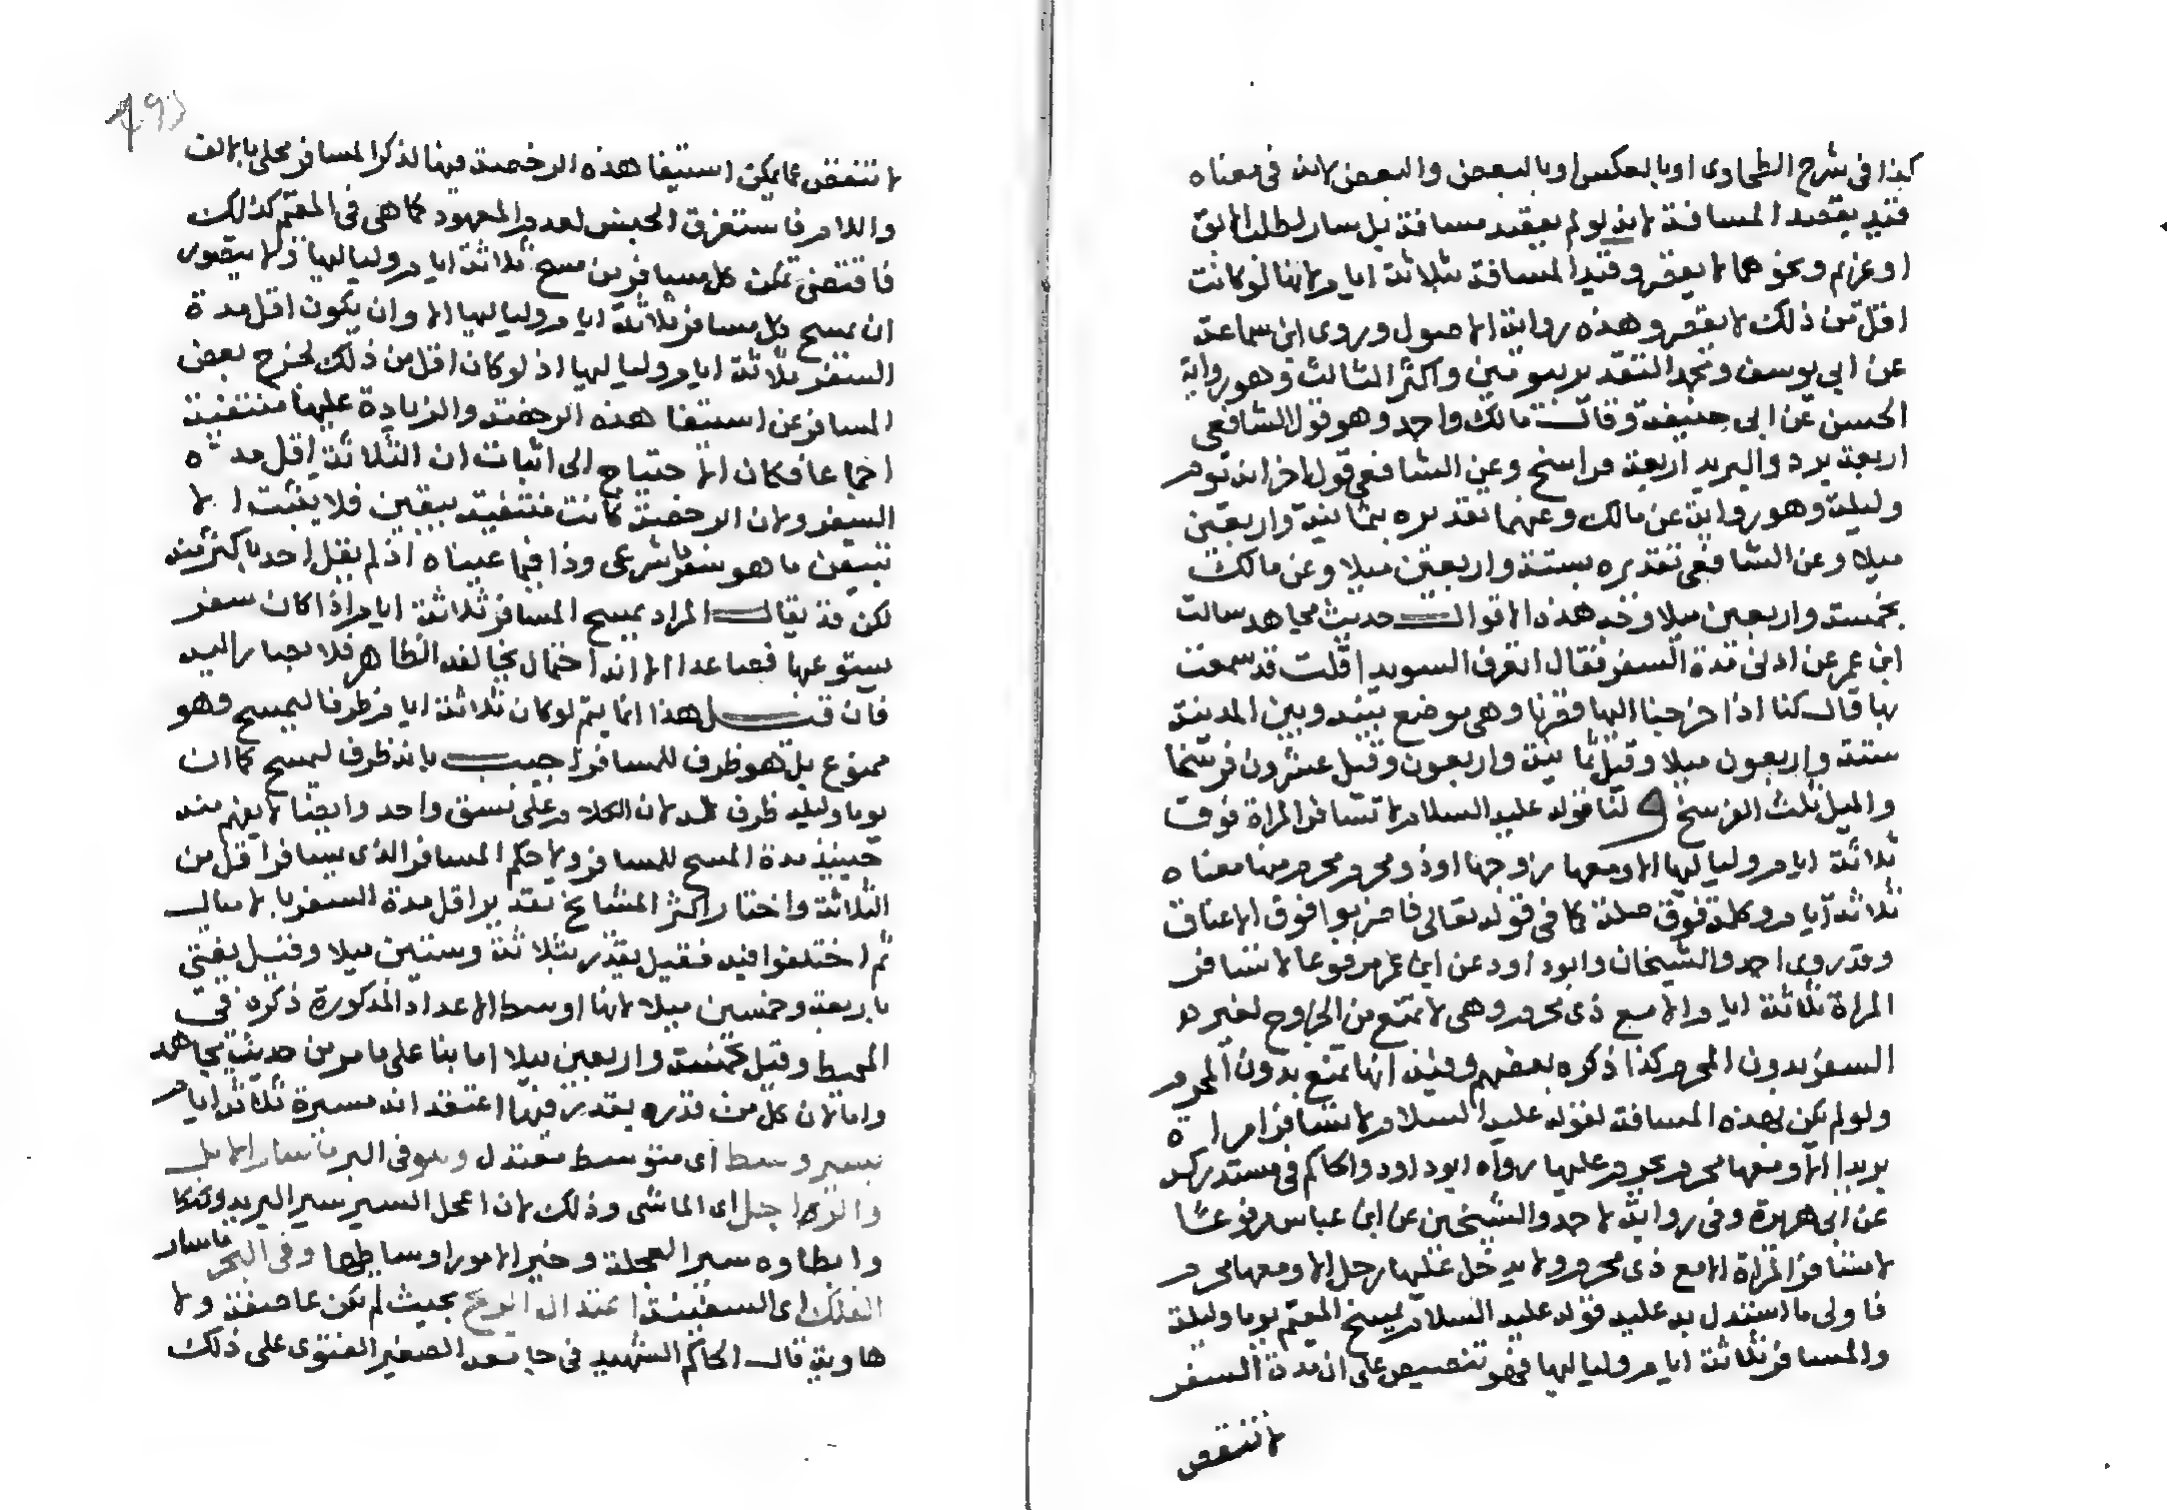 كذا في شرح الطحاوى او بالعكس او بالبعض والبعض لانه فى معناه
قيد بقصد المسافة لانه لو لم يقصد مسافة بل سار لطلب ابق
او غريم ونحوهما لا يقصر وقيد المسافة بثلاثة ايام لانها لو كانت
اقل من ذلك لا يقصر وهذه رواية الاصول وروى ابن سماعة
عن ابي يوسف ومحمد التقدير بيومين واكثر الثالث وهو رواية
الحسن عن ابى حنيفة وقال مالك واحد وهو قول الشافعى
اربعة برد والبريد اربعة فراسخ وعن الشافعى قول اخر انه يوم
وليلة وهو رواية عن مالك وعنهما تقديره بثمانية واربعين
ميلا وعن الشافعى تقديره بستة واربعين ميلا وعن مالك
بخمسة واربعين ميلا وخد هذه الاقوال حديث مجاهد سالت
ابن عمر عن ادنى مدة السفر فقال اتعرف السويدا قلت قد سمعت
بها قال كنا اذا خرجنا اليها قصرنا وهى موضع بينه وبين المدينة
ستة واربعون ميلا وقيل ثمانية واربعون وقيل عشرون فرسخا
والميل ثلث الفرسخ و لنا قوله عليه السلام لا تسافر المراة فوق
ثلاثة ايام ولياليها الا ومعها زوجها او ذو محرم محرم منها معناه
ثلاثة ايام وكلمة فوق صلة كما في قوله تعالى فاضربوا فوق الاعناق
وقد روى احمد والشيخان وابو داود عن ابن عمر مرفوعا لا تسافر
المراة ثلاثة ايام الا مع ذى محرم وهى لا تمتع من الخروج لغير
السفر بدون المحرم كذا ذكره بعضهم وفيه انها تمنع بدون المحرم
ولو لم تكن بهذه المسافة لقوله عليه السلام لا تسافر امراة
بريدا الا ومعها محرم يحرم عليها رواه ابو داود والحاكم فى مستدركه
عن ابى هريرة وفى رواية لاحمد والشيخين عن ابن عباس مرفوعا
لا تسافر المراة الا مع ذى محرم ولا يدخل عليها رجل الا ومعها محرم
فاولى ما استدل به عليه قوله عليه السلام يمسح المقيم يوما وليلة
والمسافر ثلاثة ايام ولياليها فهو تنصيص على ان مدة السفر
لا تنقص
193
لا تنقص عما يمكن استيفا هذه الرخصة فيها لذكر المسافر محلى بالالف
واللام فاستغرق الجنس لعدم المعهود كما هى فى المقيم كذلك
فاقتضى تمكن كل مسافر من مسح ثلاثة ايام ولياليها اذ لا يتصور
ان يمسح كل مسافر ثلاثة ايام ولياليها الا وان يكون اقل مدة
السفر ثلاثة ايام ولياليها اذ لو كان اقل من ذلك لخرج بعض
المسافر عن استيفا هذه الرخصة والزيادة عليها منتفية
اجماعا فكان الاحتياج الى اثبات ان الثلاثة اقل مدته
السفر ولان الرخصة كانت منتفية بيقين فلا يثبت الا
بتيقن ما هو سفر شرعى وذا فيما عيناه اذ لم يقل احد باكثر منه
لكن قد يقال المراد يمسح المسافر ثلاثة ايام اذا كان سفر
يستوعبها فصاعدا الا انه احتمال يخالفه الظاهر فلا يصار اليه
فان قيل هذا انما يتم لو كان ثلاثة ايام ظرفا ليمسح وهو
ممنوع بل هو ظرف للمسافر اجيب بانه ظرف ليمسح كما ان
يوما وليلة ظرف له لان الكلام على نسق واحد وايضا لا يفهم منه
حينيذ مدة المسح للمسافر ولا حكم المسافر الذى يسافر اقل من
الثلاثة واختار اكثر المشايخ تقدير اقل مدة السفر بالاميال
ثم اختلفوا فيه فقيل يقدر بثلاثة وستين ميلا وقيل يفتى
باربعة وخمسين ميلا لانها اوسط الاعداد المذكورة ذكره فى
المحيط وقيل بخمسة واربعين ميلا اما بنا على ما مر من حديث مجاهد
واما لان كل من قدره بقدر فيها اعتقد انه مسيرة ثلاثة ايام
بسير وسط اى متوسط معتدل وهو فى البر ما سار الابل
والراجل اى الماشى وذلك لان اعجل السير سير البريد وكذا
وابطاوه سير العجلة وخير الامور اوساطها وفى البحر ما سار
الفلك اى السفينة اعتدال الريح بحيث لم تكن عاصفة ولا
هاوية قال الحاكم الشهيد فى جامعه الصغير الفتوى على ذلك